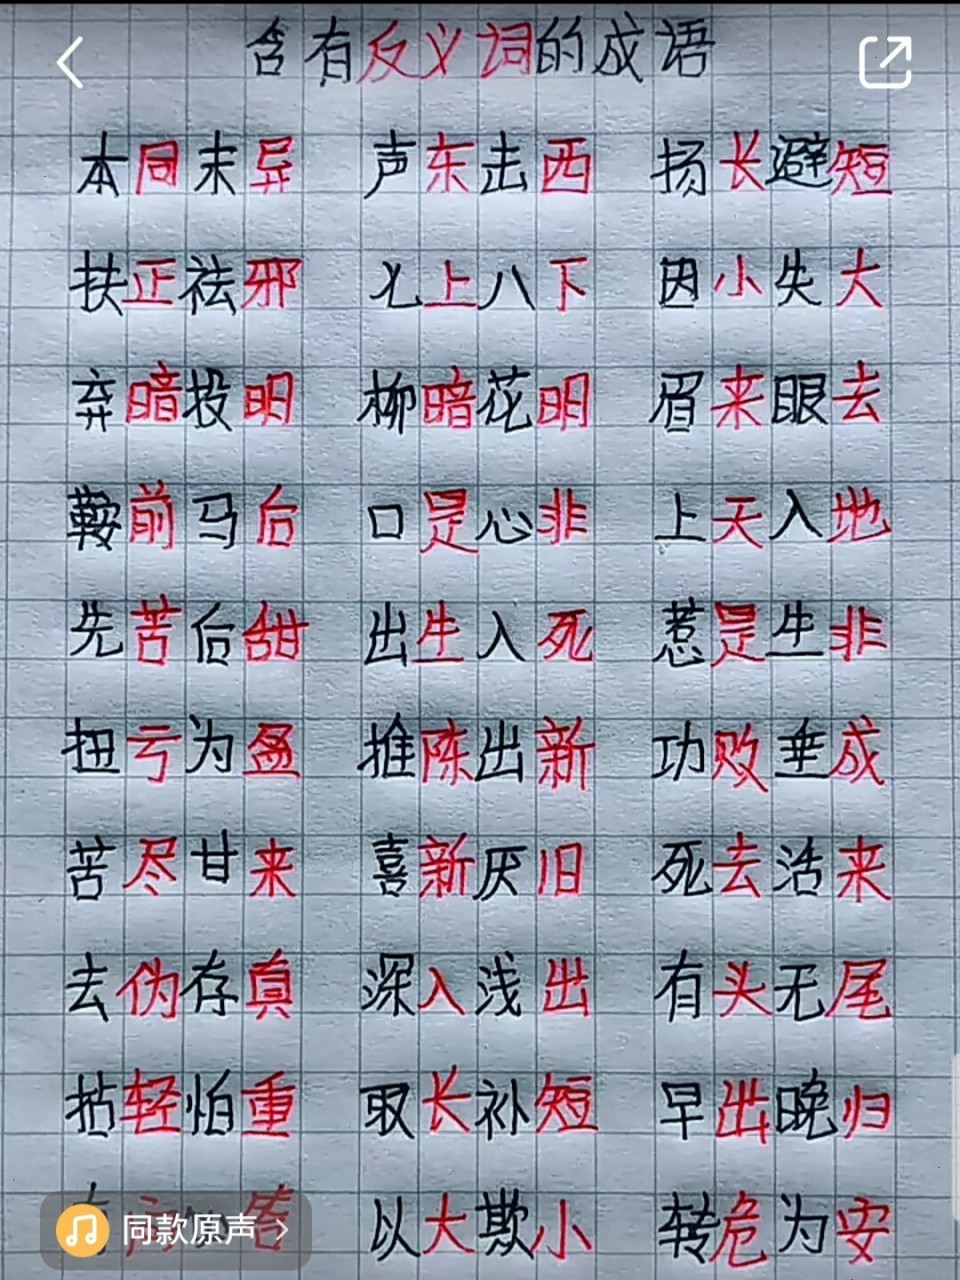 含有反义词的成语
本同末异 声东击西 扬长避短
扶正祛邪 七上八下 因小失大
弃暗投明 柳暗花明 眉来眼去
鞍前马后 口是心非 上天入地
先苦后甜 出生入死 惹是生非
扭亏为盈 推陈出新 功败垂成
苦尽甘来 喜新厌旧 死去活来
去伪存真 深入浅出 有头无尾
拈轻怕重 取长补短 早出晚归
以大欺小 转危为安
同款原声